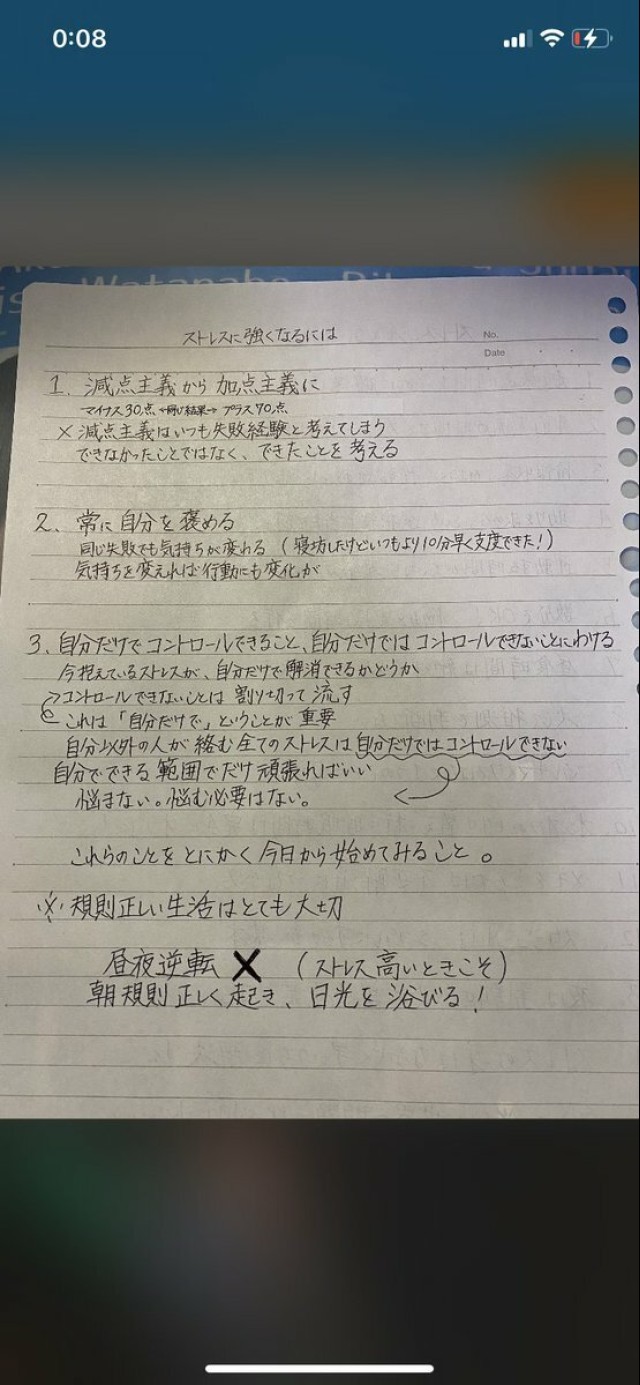 0:08
Watanabe
ストレスに強くなるには
No.
Date
1. 減点主義から加点主義に
マイナス30点 ←同じ結果→ プラス70点
× 減点主義はいつも失敗経験と考えてしまう
できなかったことではなく、できたことを考える
2. 常に自分を褒める
同じ失敗でも気持ちが変わる (寝坊したけどいつもより10分早く支度できた!)
気持ちを変えれば行動にも変化が
3. 自分だけでコントロールできること、自分だけではコントロールできないことにわける
今抱えているストレスが、自分だけで解消できるかどうか
コントロールできないことは割り切って流す
これは「自分だけで」ということが重要
自分以外の人が絡む全てのストレスは自分だけではコントロールできない
自分でできる範囲でだけ頑張ればいい
悩まない。悩む必要はない。
これらのことをとにかく今日から始めてみること。
※ 規則正しい生活はとても大切
昼夜逆転 × (ストレス高いときこそ)
朝規則正しく起き、日光を浴びる!